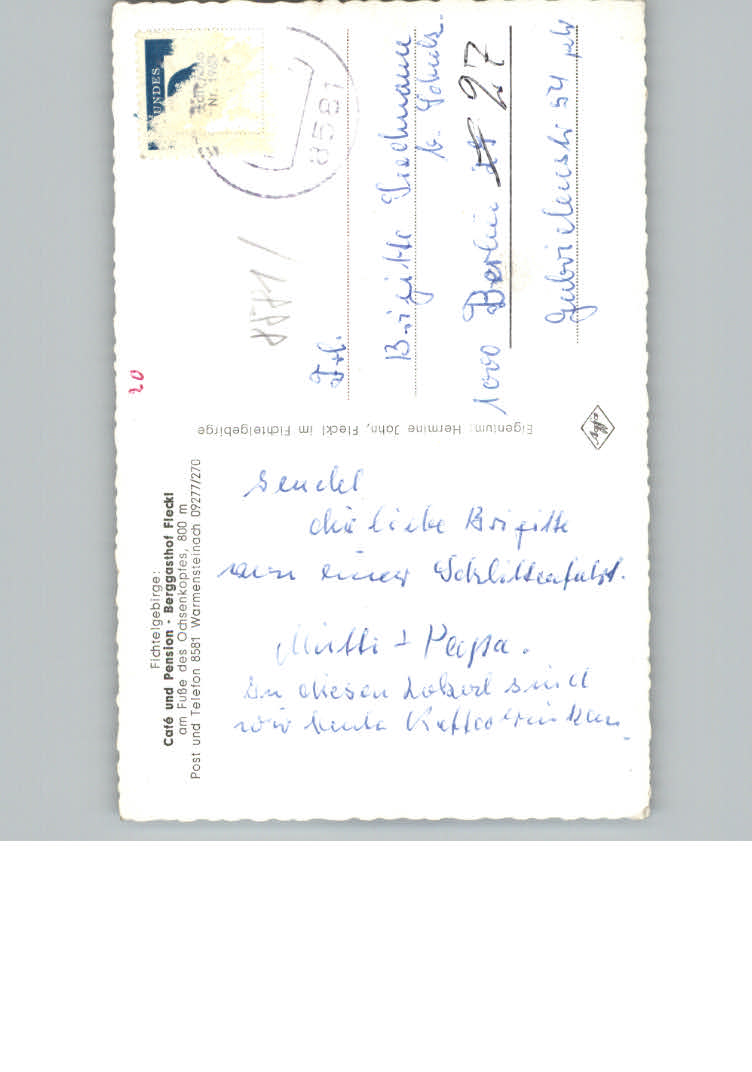 Fichtelgebirge:
Café und Pension - Berggasthof Fleckl
am Fuße des Ochsenkopfes, 800 m
Post und Telefon 8581 Warmensteinach 09277/270
sendet
die liebe Brigitte
von einer Schlittenfahrt.
Mutti + Papa.
In diesen Lokal sind
wir heute Kaffeetrinken
Eigentum: Hermine John, Fleckl im Fichtelgebirge
20
8581
UNDES
8581
Frl.
Brigitte
b. Schulz
1000 Berlin 27
Gabrielenstr. 54